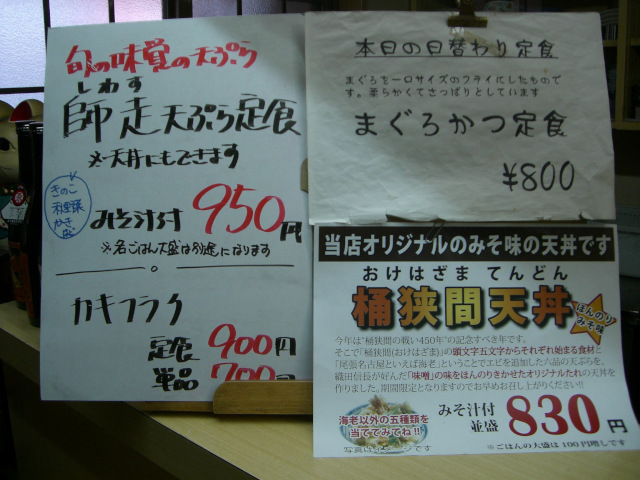 旬の味覚の天ぷら
しわす
師走天ぷら定食
※天丼にもできます
きのこ
みそ汁付 950円
※各ごはん大盛は別途になります
カキフライ
定食 900円
単品 700円
本日の日替わり定食
まぐろを一口サイズのフライにしたもので
す。柔らかくてさっぱりとしています
まぐろかつ定食
¥800
当店オリジナルのみそ味の天丼です
おけはざま てんどん
桶狭間天丼
ほんのり
みそ味
今年は"桶狭間の戦い450年"の記念すべき年です。
そこで「桶狭間(おけはざま)」の頭文字五文字からそれぞれ始まる食材と
「尾張名古屋といえば海老」ということでエビを追加した六品の天ぷらを、
織田信長が好んだ「味噌」の味をほんのりきかせたオリジナルたれの天丼を
作りました。期間限定となりますのでお早めお召し上がりください!!
海老以外の五種類を
当ててみてね!!
みそ汁付
並盛 830円
※ごはんの大盛は100円増しです